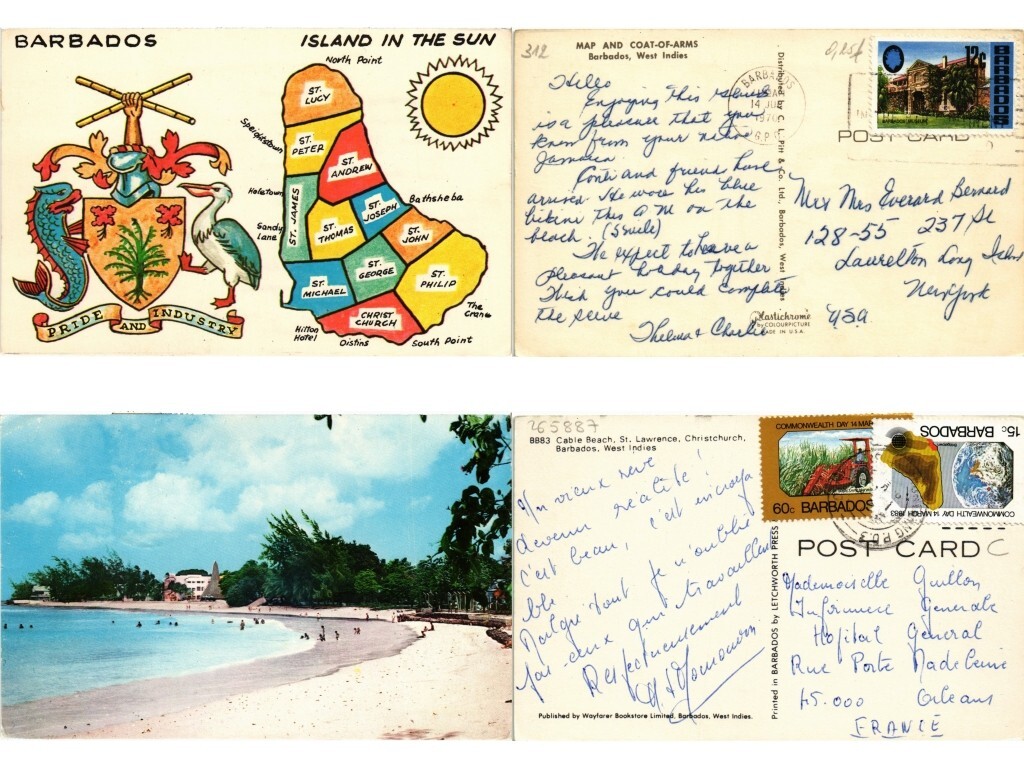 BARBADOS
ISLAND IN THE SUN
North Point
ST. LUCY
Speightstown
ST. PETER
ST. ANDREW
Holetown
ST. JAMES
ST. JOSEPH
Bathsheba
Sandy Lane
ST. THOMAS
ST. JOHN
ST. GEORGE
ST. PHILIP
ST. MICHAEL
The Crane
CHRIST CHURCH
Hilton Hotel
Distins
South Point
PRIDE AND INDUSTRY
312
MAP AND COAT-OF-ARMS
Barbados, West Indies
BARBADOS
14 JU
G.P.O.
12c
BARBADOS
POST CARD
Distributed by C. L. Pitt & Co. Ltd., Barbados, West Indies
Hello
Enjoying this
is a pleasure that you
know from your
Jamaica.
and friend have
arrived. He wore his blue
bikini this A M on the
beach. (Smile)
We expect to have a
pleasant holiday together
Wish you could complete
the
Thelma & Charlie
Mr & Mrs Everard Bernard
128-55 237 St
Laurelton Long Island
New York
USA
Plastichrome
by COLOURPICTURE
MADE IN U.S.A.
265887
8883 Cable Beach, St. Lawrence, Christchurch,
Barbados, West Indies
COMMONWEALTH DAY 14 MAR
60c BARBADOS
15c BARBADOS
COMMONWEALTH DAY 14 MARCH 1983
POST CARD C
Un vieux reve
devenu réalité !
C'est beau, c'est incroya
ble
Malgré tout je n'oublie
pas ceux qui travaillent
Respectueusement
Mademoiselle Guillon
Infirmiere Generale
Hopital General
Rue Porte Madeleine
45.000 Orleans
FRANCE
Printed in BARBADOS by LETCHWORTH PRESS
Published by Wayfarer Bookstore Limited, Barbados, West Indies.